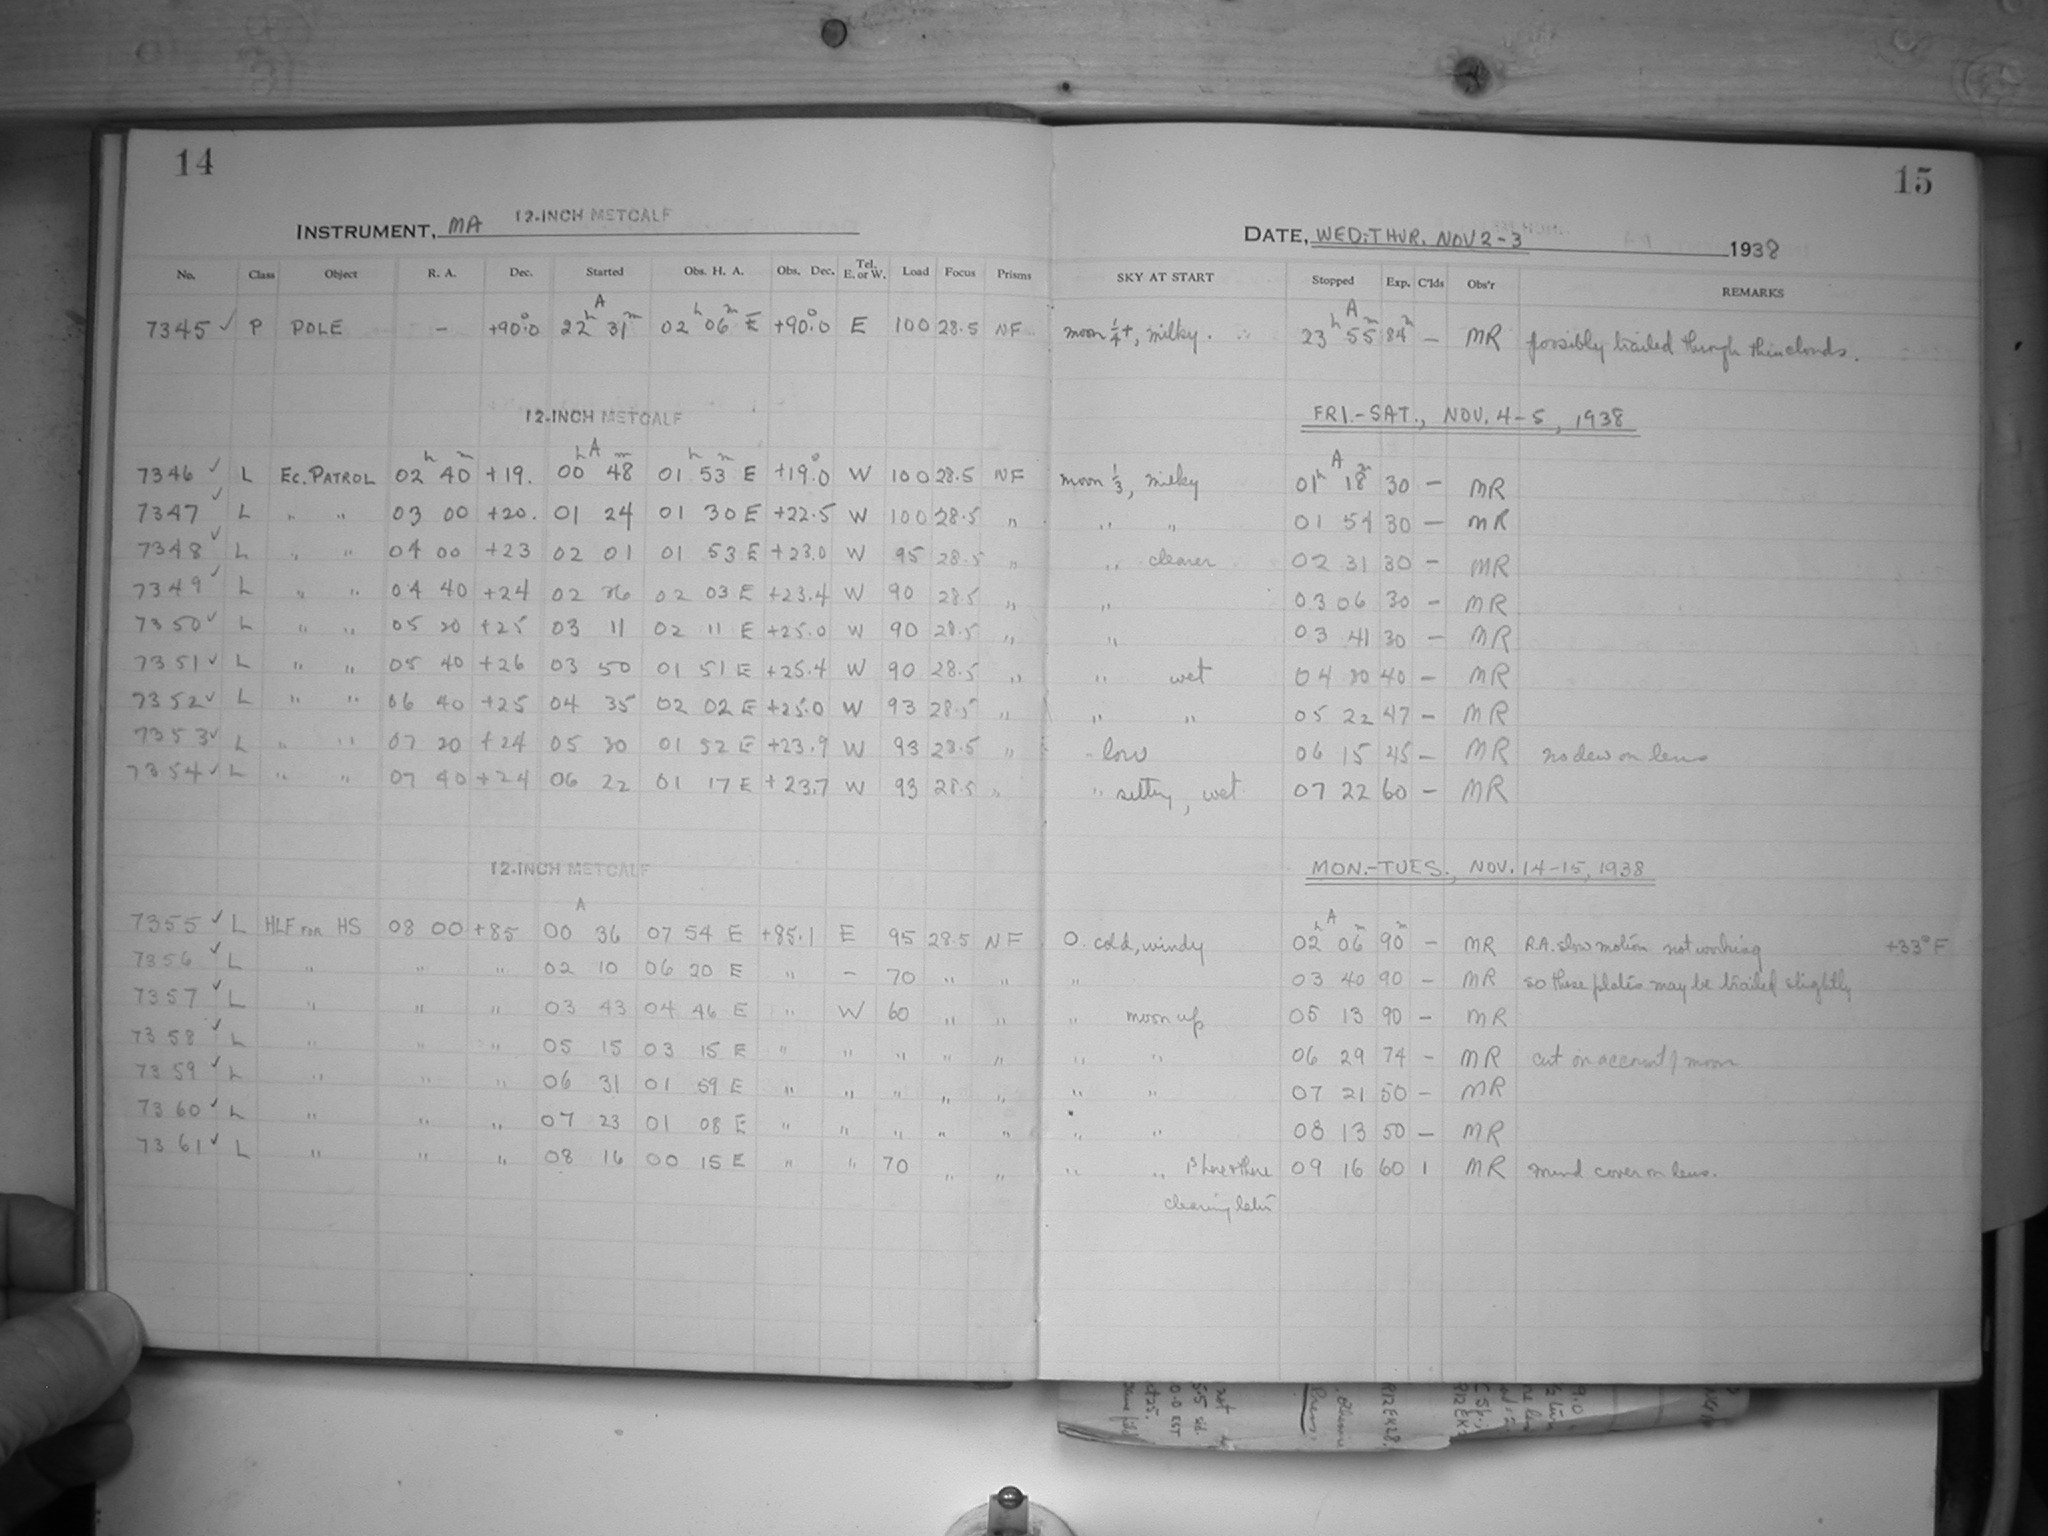 14
15
INSTRUMENT, MA 12-INCH METCALF
DATE, WED.-THUR. NOV 2-3 1938
No. Class Object R. A. Dec. Started Obs. H. A. Obs. Dec. Tel. E. or W. Load Focus Prisms SKY AT START Stopped Exp. C'lds Obs'r REMARKS
7345 ✓ P POLE - +90°.0 22h 31m A 02h 06m E +90°.0 E 100 28.5 NF moon ¼+, milky. 23h 55m A 84m - MR possibly trailed through thin clouds.
12-INCH METCALF FRI.-SAT., NOV. 4-5, 1938
7346 ✓ L Ec. PATROL 02h 40m +19. 00h 48m A 01h 53m E +19°.0 W 100 28.5 NF moon ⅓, milky 01h 18m A 30 - MR
7347 ✓ L " " 03 00 +20. 01 24 01 30 E +22.5 W 100 28.5 " " " 01 54 30 - MR
7348 ✓ L " " 04 00 +23 02 01 01 53 E +23.0 W 95 28.5 " " clearer 02 31 30 - MR
7349 ✓ L " " 04 40 +24 02 36 02 03 E +23.4 W 90 28.5 " " 03 06 30 - MR
7350 ✓ L " " 05 20 +25 03 11 02 11 E +25.0 W 90 28.5 " " 03 41 30 - MR
7351 ✓ L " " 05 40 +26 03 50 01 51 E +25.4 W 90 28.5 " " wet 04 30 40 - MR
7352 ✓ L " " 06 40 +25 04 35 02 02 E +25.0 W 93 28.5 " " " 05 22 47 - MR
7353 ✓ L " " 07 20 +24 05 30 01 52 E +23.9 W 93 28.5 " " low 06 15 45 - MR no dew on lens
7354 ✓ L " " 07 40 +24 06 22 01 17 E +23.7 W 93 28.5 " " setting, wet 07 22 60 - MR
12-INCH METCALF MON.-TUES., NOV. 14-15, 1938
7355 ✓ L HLF FOR HS 08 00 +85 00 36 A 07 54 E +85.1 E 95 28.5 NF O. cold, windy 02h 06m A 90m - MR R.A. slow motion not working +33°F
7356 ✓ L " " " 02 10 06 20 E " - 70 " " " 03 40 90 - MR so these plates may be trailed slightly
7357 ✓ L " " " 03 43 04 46 E " W 60 " " " moon up 05 13 90 - MR
7358 ✓ L " " " 05 15 03 15 E " " " " " " " 06 29 74 - MR cut on account of moon
7359 ✓ L " " " 06 31 01 59 E " " " " " " " 07 21 50 - MR
7360 ✓ L " " " 07 23 01 08 E " " " " " " " 08 13 50 - MR
7361 ✓ L " " " 08 16 00 15 E " " 70 " " " " here & there 09 16 60 1 MR mend cover on lens.
clearing later